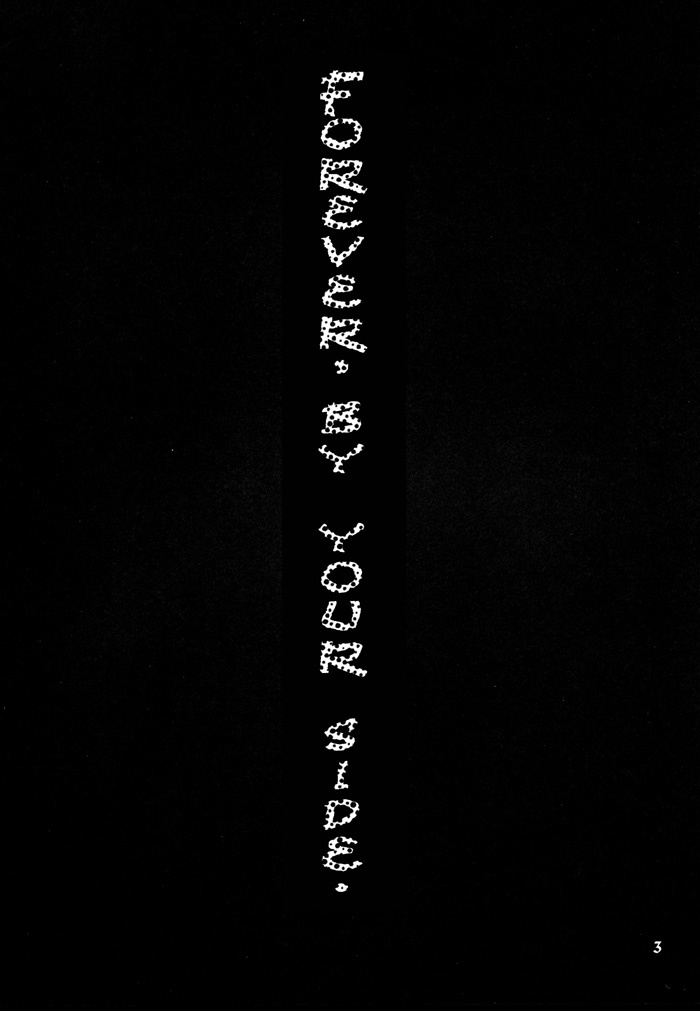 FOREVER. BY YOUR SIDE.
3